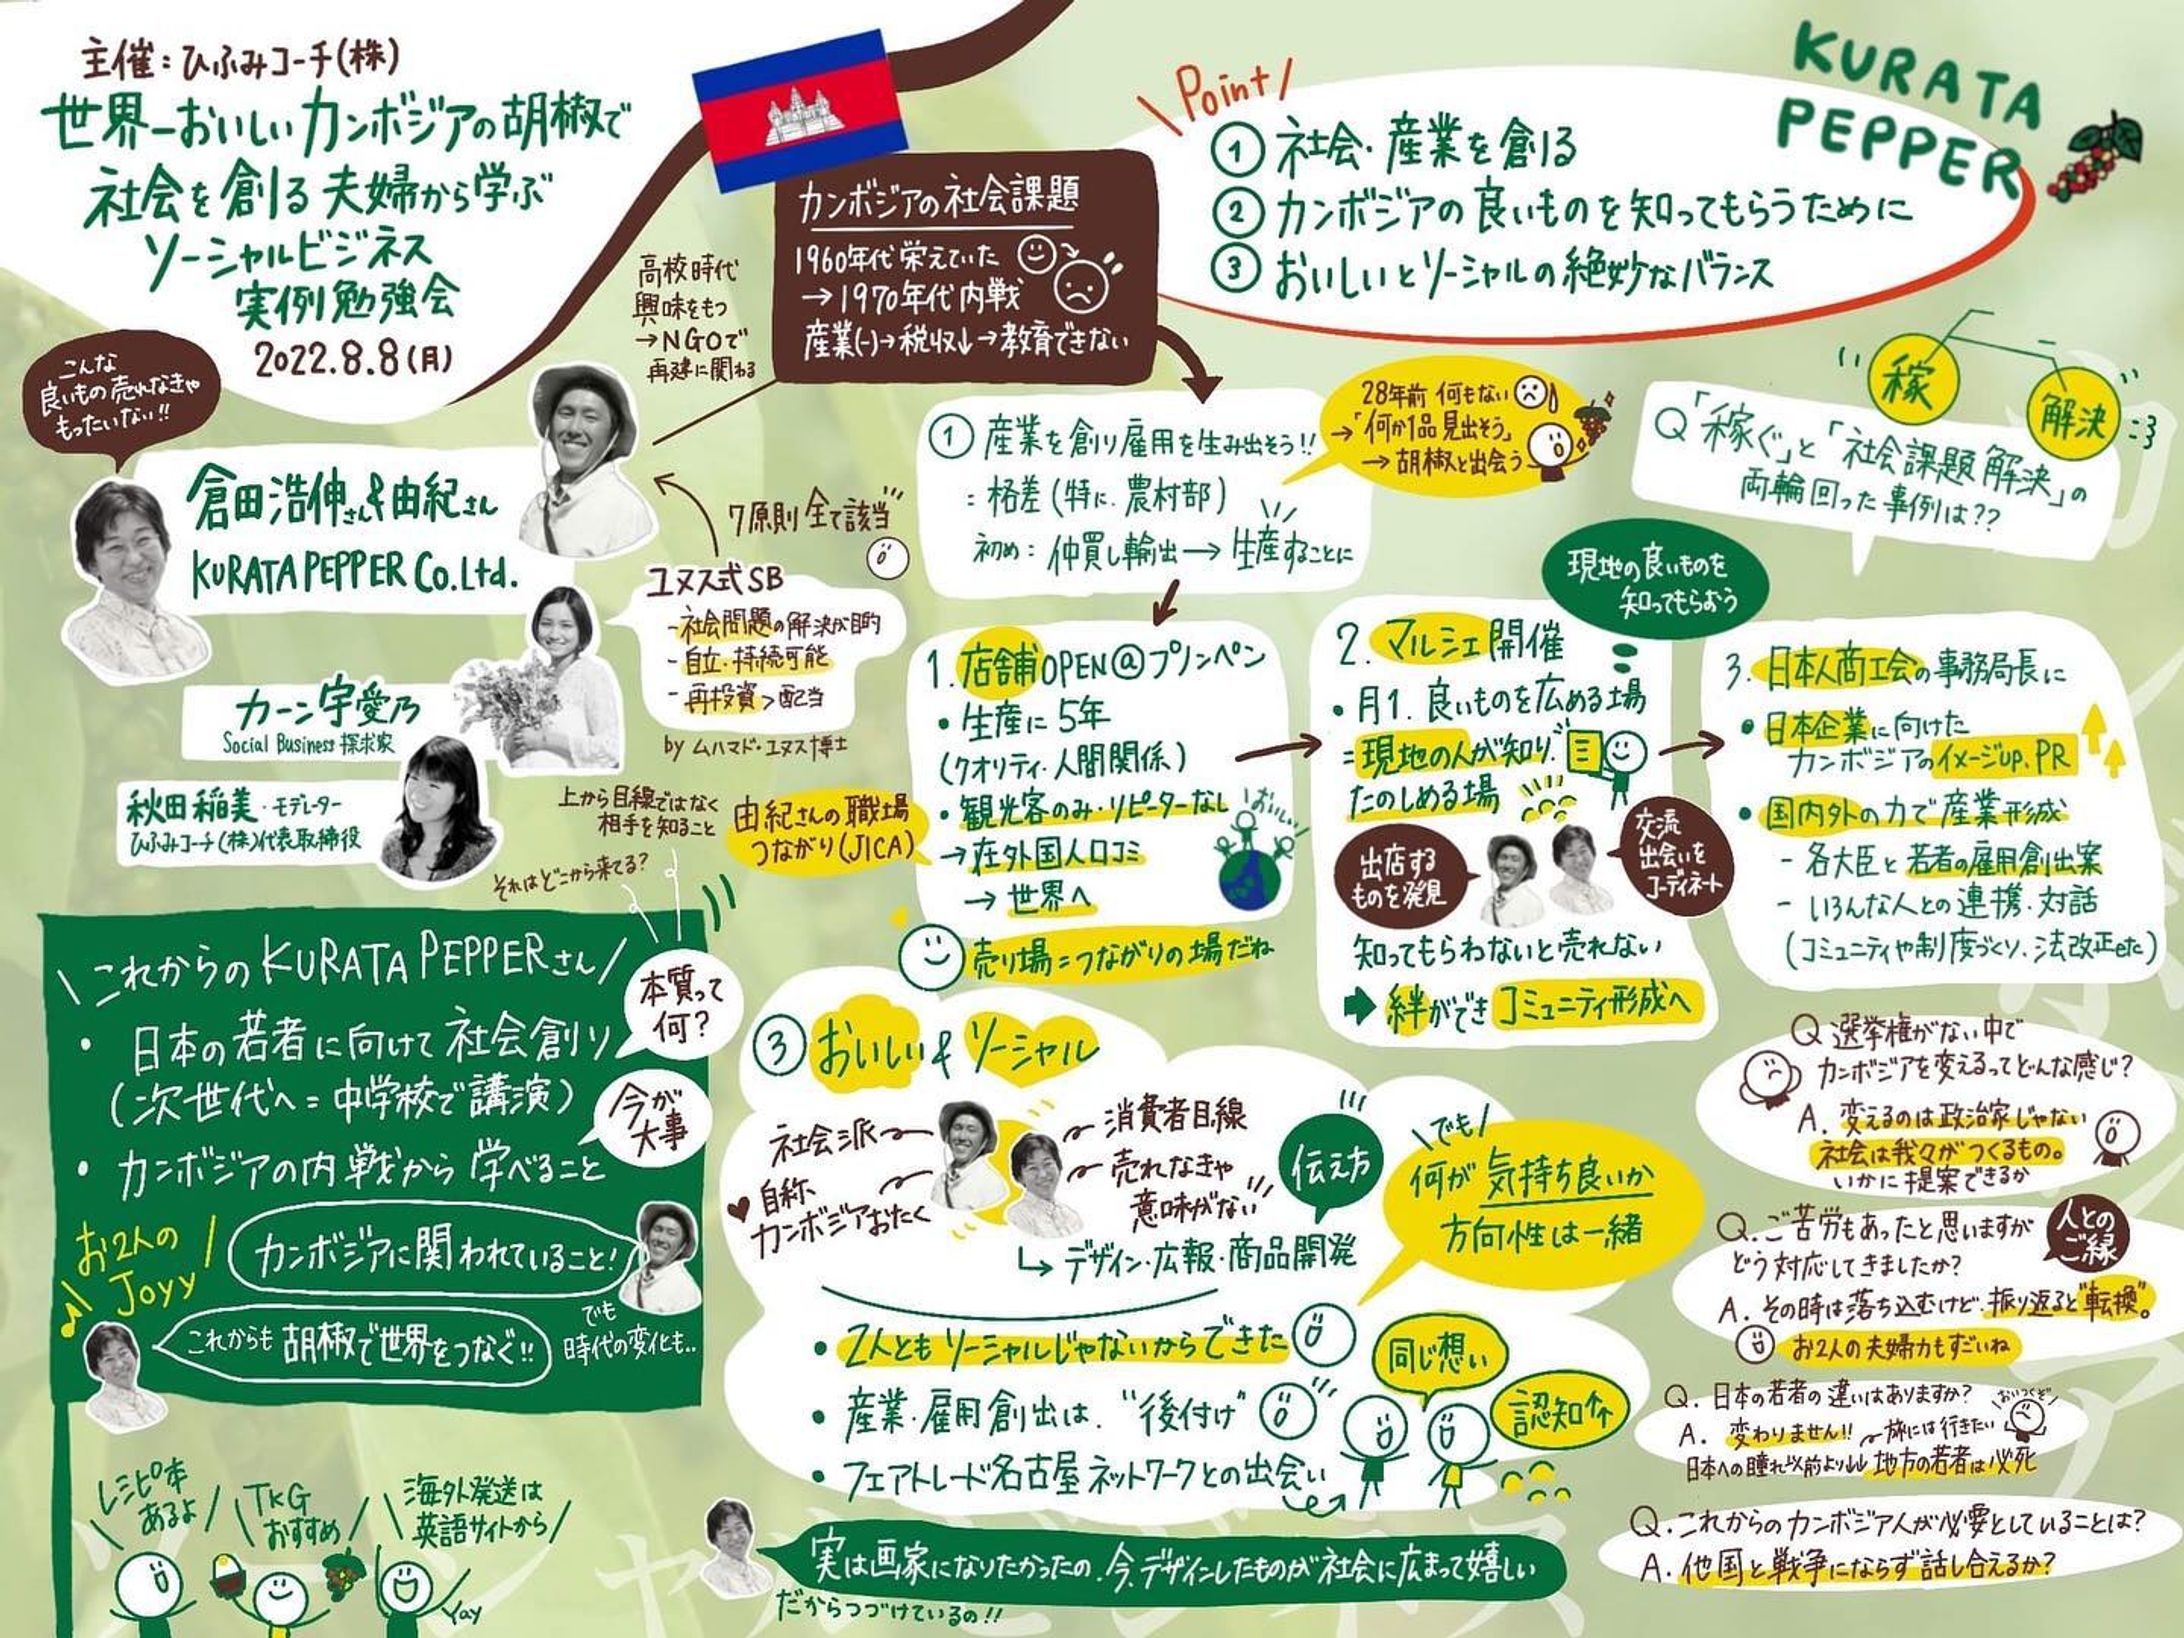 主催：ひふみコーチ(株)
世界一おいしいカンボジアの胡椒で
社会を創る夫婦から学ぶ
ソーシャルビジネス
実例勉強会
2022.8.8(月)
\Point/
① 社会・産業を創る
② カンボジアの良いものを知ってもらうために
③ おいしいとソーシャルの絶妙なバランス
KURATA
PEPPER
カンボジアの社会課題
1960年代栄えていた
→1970年代内戦
産業(-)→税収↓→教育できない
高校時代
興味をもつ
→NGOで
再建に関わる
こんな
良いもの売れなきゃ
もったいない!!
倉田浩伸さん&由紀さん
KURATA PEPPER Co.Ltd.
7原則全て該当
ユヌス式SB
-社会問題の解決が目的
-自立・持続可能
-再投資>配当
by ムハマド・ユヌス博士
カーン宇愛乃
Social Business 探求家
秋田稲美・モデレーター
ひふみコーチ(株)代表取締役
上から目線ではなく
相手を知ること
それはどこから来てる?
① 産業を創り雇用を生み出そう!!
= 格差(特に、農村部)
初め：仲買し輸出→生産することに
28年前 何もない
→「何か1品見出そう」
→胡椒と出会う
稼
解決
Q「稼ぐ」と「社会課題解決」の
両輪回った事例は??
現地の良いものを
知ってもらおう
1. 店舗OPEN@プノンペン
・生産に5年
(クオリティ・人間関係)
・観光客のみ・リピーターなし
→在外国人口コミ
→世界へ
おいしい
由紀さんの職場
つながり(JICA)
売り場=つながりの場だね
2. マルシェ開催
・月1. 良いものを広める場
=現地の人が知り、
たのしめる場
出店する
ものを発見
交流
出会いを
コーディネート
知ってもらわないと売れない
➡絆ができコミュニティ形成へ
3. 日本人商工会の事務局長に
・日本企業に向けた
カンボジアのイメージup、PR
・国内外の力で産業形成
- 各大臣と若者の雇用創出案
- いろんな人との連携・対話
(コミュニティや制度づくり、法改正etc)
\これからのKURATA PEPPERさん/
・日本の若者に向けて社会創り
(次世代へ=中学校で講演)
・カンボジアの内戦から学べること
本質って
何?
今が
大事
お2人の
Joyy
カンボジアに関われていること!
これからも胡椒で世界をつなぐ!!
でも
時代の変化も..
\レシピ本
あるよ/
\TKG
おすすめ/
\海外発送は
英語サイトから/
Yay
③ おいしい&ソーシャル
社会派
自称
カンボジアおたく
消費者目線
売れなきゃ
意味がない
↳デザイン・広報・商品開発
伝え方
\でも/
何が気持ち良いか
方向性は一緒
・2人ともソーシャルじゃないからできた
・産業・雇用創出は、“後付け”
・フェアトレード名古屋ネットワークとの出会い
同じ想い
認知
実は画家になりたかったの、今、デザインしたものが社会に広まって嬉しい
だからつづけているの!!
Q 選挙権がない中で
カンボジアを変えるってどんな感じ?
A. 変えるのは政治家じゃない
社会は我々がつくるもの。
いかに提案できるか
Q. ご苦労もあったと思いますが
どう対応してきましたか?
人との
ご縁
A. その時は落ち込むけど、振り返ると“転換”。
お2人の夫婦力もすごいね
Q. 日本の若者の違いはありますか?
A. 変わりません!! 旅には行きたい
おいつくぞ
日本への憧れ以前より↓ 地方の若者は必死
Q. これからのカンボジア人が必要としていることは?
A. 他国と戦争にならず話し合えるか?